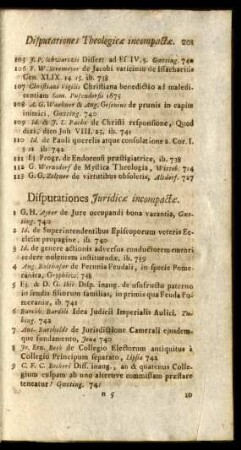 Disputationes Theologicæ incompactæ. 201
105 J. P. Schwartzii Dissert. ad Ef IV. 5. Gætting. 740
106 F. W. Stromeyer de Jacobi vaticinio de Issacharitis
Gen. XLIX. 14. 15. ib. 738
107 Christiani Vigilis Christiana benedictio ad maledi-
centiam Sam. Pufendorfii 1675
108 A. G. Waehner & Aug. Gesenius de prunis in capita
inimici, Gætting. 740
109 Id. & J. L. Paulsr de Christi responsione, Quod
dixi, dien Joh VIII. 25. ib. 741
110 Id. de Pauli querelis atque consolatione 2. Cor. I.
3 11 ib. 742
111 Ej Progr. de Endorensi præstigiatrice, ib. 738
112 G Wernsdorf de Mystica Theologia, Witteb. 714
113 G. G. Zeltner de virtutibus obsoletis, Altdorf. 727
Disputationes Juridicæ incompactæ.
1 G. H. Ayrer de Jure occupandi bona vacantia, Gæt-
ting. 742
2 Id. de Superintendentibus Episcoporum veteris Ec-
clesiæ propagine, ib. 740
3 Id. de genere actionis adversus conductorem emtori
cedere nolentem instituendæ, ib. 739
4 Aug. Balthasar de Feremia Feudali, in specie Pome-
ranica, Gryphisw. 741
5 Ej. & D. G. Ihr Disp. inaug. de usufructu paterno
in feudis filiorum familias, in primis qua Feuda Po-
meraniæ, ib. 741
6 Burcik. Bardili Idea Judicii Imperialis Aulici. Tu-
bing. 742
7 Ant. Bartholdt de Jurisdictione Camerali ejusdem-
que fundamento, Jenæ 740
8 Jo. Ern. Beck de Collegio Electorum antiquitus à
Collegio Principum separato, Lipsiæ 742
9 C. F. C. Becheri Diss. inaug., an & quatenus Colle-
gium culpam ab uno alterove commissam præstare
teneatur? Gætting. 741
n 5 10